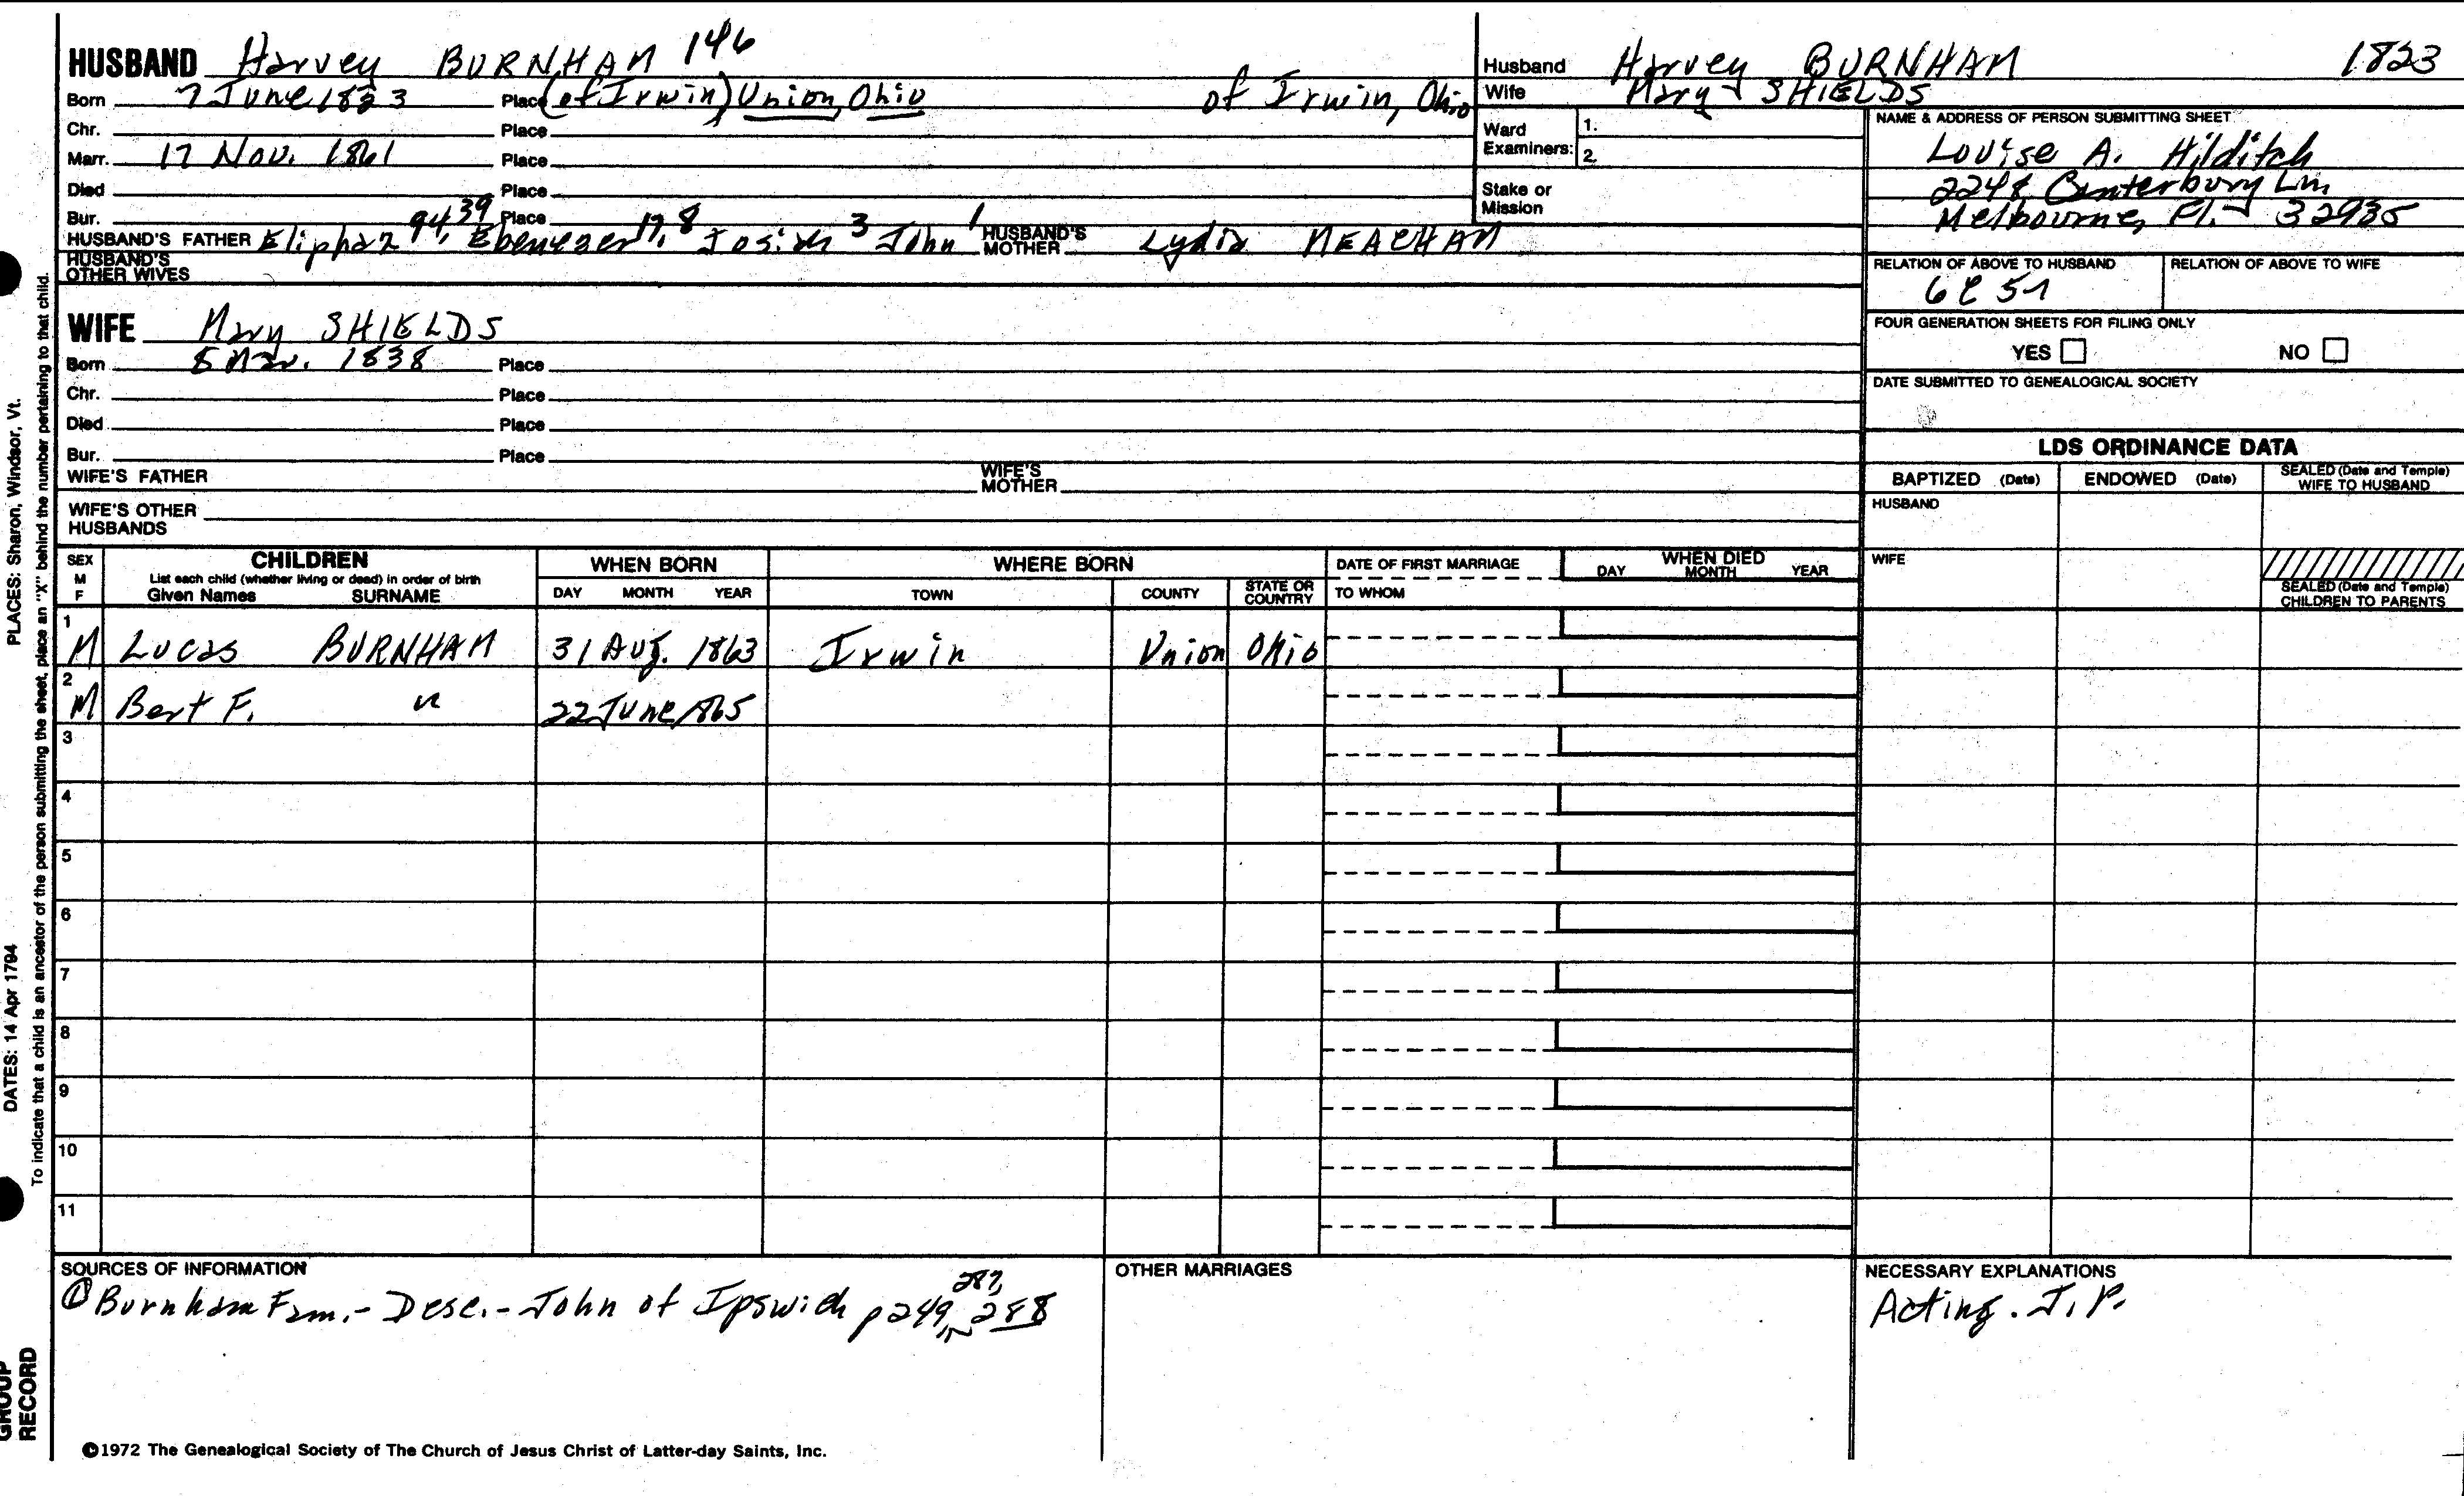 HUSBAND Harvey BURNHAM 146
Born 7 June 1823 Place (of Irwin) Union, Ohio of Irwin, Ohio
Chr. Place
Marr. 17 Nov. 1861 Place
Died Place
Bur. Place
HUSBAND'S FATHER Eliphaz 94, 39 Ebenezer 17, 8 Josiah 3 John 1 HUSBAND'S MOTHER Lydia MEACHAM
HUSBAND'S OTHER WIVES
WIFE Mary SHIELDS
Born 8 Mar. 1838 Place
Chr. Place
Died Place
Bur. Place
WIFE'S FATHER WIFE'S MOTHER
WIFE'S OTHER HUSBANDS
Husband Harvey BURNHAM 1823
Wife Mary SHIELDS
Ward Examiners: 1.
2.
Stake or Mission
NAME & ADDRESS OF PERSON SUBMITTING SHEET
Louise A. Hilditch
2248 Canterbury Ln.
Melbourne, Fl. 32935
RELATION OF ABOVE TO HUSBAND RELATION OF ABOVE TO WIFE
6C5
FOUR GENERATION SHEETS FOR FILING ONLY
YES NO
DATE SUBMITTED TO GENEALOGICAL SOCIETY
LDS ORDINANCE DATA
BAPTIZED (Date) ENDOWED (Date) SEALED (Date and Temple) WIFE TO HUSBAND
HUSBAND
WIFE
SEALED (Date and Temple) CHILDREN TO PARENTS
SEX M F CHILDREN WHEN BORN WHERE BORN DATE OF FIRST MARRIAGE WHEN DIED
List each child (whether living or dead) in order of birth
Given Names SURNAME DAY MONTH YEAR TOWN COUNTY STATE OR COUNTRY TO WHOM DAY MONTH YEAR
1 M Lucas BURNHAM 31 Aug. 1863 Irwin Union Ohio
2 M Bert F. " 22 June 1865
3
4
5
6
7
8
9
10
11
SOURCES OF INFORMATION
① Burnham Fam. - Desc. - John of Ipswich p 249, 287, 288
OTHER MARRIAGES
NECESSARY EXPLANATIONS
Acting. J. P.
©1972 The Genealogical Society of The Church of Jesus Christ of Latter-day Saints, Inc.
PLACES: Sharon, Windsor, Vt.
DATES: 14 Apr 1794
To indicate that a child is an ancestor of the person submitting the sheet, place an "X" behind the number pertaining to that child.
GROUP
RECORD